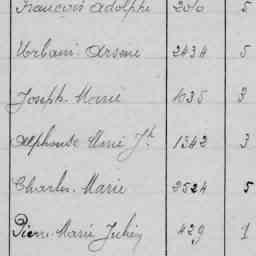 François Adolphe 206 5
Urbain Arsène 2434 5
Joseph Marie 1035 3
Alphonse Marie Jh 1342 3
Charles Marie 2524 5
Pierre Marie 429 1